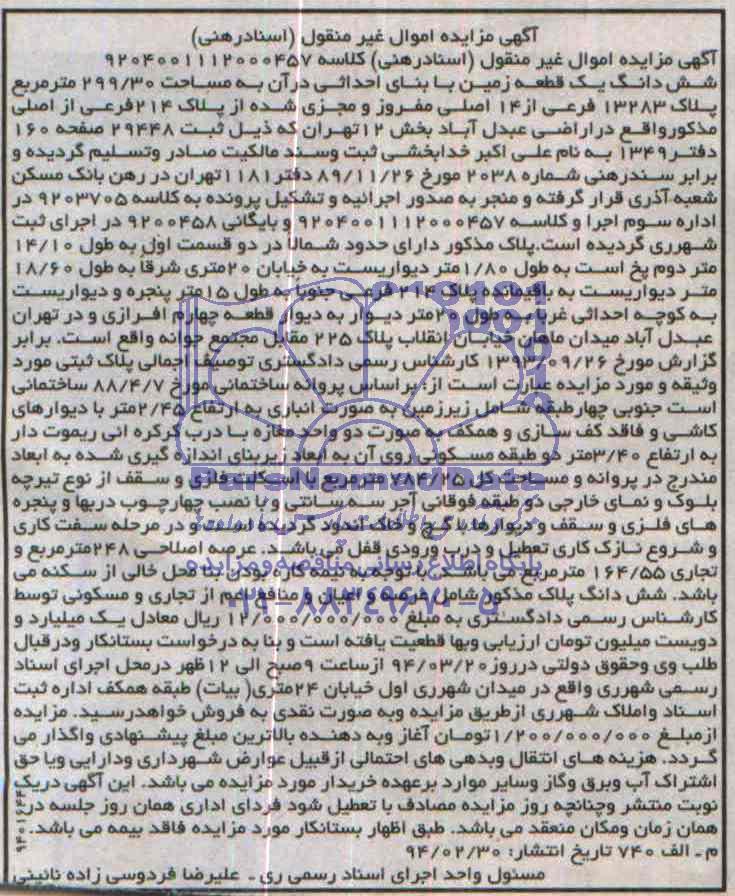 آگهی مزایده اموال غیر منقول (اسنادرهنی)
آگهی مزایده اموال غیر منقول (اسنادرهنی) کلاسه ۹۲۰۴۰۰۱۱۱۲۰۰۰۴۵۷
شش دانگ یک قطعه زمین با بنای احداثی درآن به مساحت ۲۹۹/۳۰ مترمربع
پلاک ۱۳۲۸۳ فرعی از۱۴ اصلی مفروز و مجزی شده از پلاک ۲۱۴فرعی از اصلی
مذکورواقع دراراضی عبدل آباد بخش ۱۲تهران که ذیل ثبت ۲۹۴۴۸ صفحه ۱۶۰
دفتر۱۳۴۹ به نام علی اکبر خدابخشی ثبت وسند مالکیت صادر وتسلیم گردیده و
برابر سندرهنی شماره ۲۰۳۸ مورخ ۸۹/۱۱/۲۶ دفتر۱۱۸۱تهران در رهن بانک مسکن
شعبه آذری قرار گرفته و منجر به صدور اجرائیه و تشکیل پرونده به کلاسه ۹۲۰۳۷۰۵ در
اداره سوم اجرا و کلاسه ۹۲۰۴۰۰۱۱۱۲۰۰۰۴۵۷ و بایگانی ۹۲۰۰۴۵۸ در اجرای ثبت
شهرری گردیده است.پلاک مذکور دارای حدود شمالا در دو قسمت اول به طول ۱۴/۱۰
متر دوم پخ است به طول ۱/۸۰متر دیواریست به خیابان ۲۰متری شرقا به طول ۱۸/۶۰
متر دیواریست به باقیمانده پلاک ۲۱۴ فرعی جنوبا به طول ۱۵متر پنجره و دیواریست
به کوچه احداثی غربا به طول ۲۰متر دیوار به دیوار قطعه چهارم افرازی و در تهران
عبدل آباد میدان ماهان خیابان انقلاب پلاک ۲۲۵ مقابل مجتمع جوانه واقع است. برابر
گزارش مورخ ۱۳۹۳/۰۹/۲۶ کارشناس رسمی دادگستری توصیف اجمالی پلاک ثبتی مورد
وثیقه و مورد مزایده عبارت است از: براساس پروانه ساختمانی مورخ ۸۸/۴/۷ ساختمانی
است جنوبی چهارطبقه شامل زیرزمین به صورت انباری به ارتفاع ۲/۴۵متر با دیوارهای
کاشی و فاقد کف سازی و همکف به صورت دو واحد مغازه با درب کرکره ائی ریموت دار
به ارتفاع ۳/۴۰متر دو طبقه مسکونی روی آن به ابعاد زیربنای اندازه گیری شده به ابعاد
مندرج در پروانه و مساحت کل ۷۸۴/۲۵ مترمربع با اسکلت فلزی و سقف از نوع تیرچه
بلوک و نمای خارجی دو طبقه فوقانی آجر سه سانتی و با نصب چهارچوب دربها و پنجره
های فلزی و سقف و دیوارها با گچ و خاک اندود گردیده است و در مرحله سفت کاری
و شروع نازک کاری تعطیل و درب ورودی قفل می باشد. عرصه اصلاحی ۲۴۸مترمربع و
تجاری ۱۶۴/۵۵ مترمربع می باشد. با توجه به نیمه کاره بودن بنا محل خالی از سکنه می
باشد. شش دانگ پلاک مذکور شامل عرصه و اعیان و منافع اعم از تجاری و مسکونی توسط
کارشناس رسمی دادگستری به مبلغ ۱۲/۰۰۰/۰۰۰/۰۰۰ ریال معادل یک میلیارد و
دویست میلیون تومان ارزیابی وبها قطعیت یافته است و بنا به درخواست بستانکار ودرقبال
طلب وی وحقوق دولتی درروز ۹۴/۰۳/۲۰ ازساعت ۹صبح الی ۱۲ظهر درمحل اجرای اسناد
رسمی شهرری واقع در میدان شهرری اول خیابان ۲۴متری( بیات) طبقه همکف اداره ثبت
اسناد واملاک شهرری ازطریق مزایده وبه صورت نقدی به فروش خواهدرسید. مزایده
ازمبلغ ۱/۲۰۰/۰۰۰/۰۰۰تومان آغاز وبه دهنده بالاترین مبلغ پیشنهادی واگذار می
گردد. هزینه های انتقال وبدهی های احتمالی ازقبیل عوارض شهرداری ودارایی ویا حق
اشتراک آب وبرق وگاز وسایر موارد برعهده خریدار مورد مزایده می باشد. این آگهی دریک
نوبت منتشر وچنانچه روز مزایده مصادف با تعطیل شود فردای اداری همان روز جلسه در
همان زمان ومکان منعقد می باشد. طبق اظهار بستانکار مورد مزایده فاقد بیمه می باشد.
م- الف ۷۴۰ تاریخ انتشار: ۹۴/۰۲/۳۰
مسئول واحد اجرای اسناد رسمی ری - علیرضا فردوسی زاده نائینی
پایگاه اطلاع رسانی مناقصه و مزایده
۰۲۱-۸۸۳۴۹۶۷۰-۵